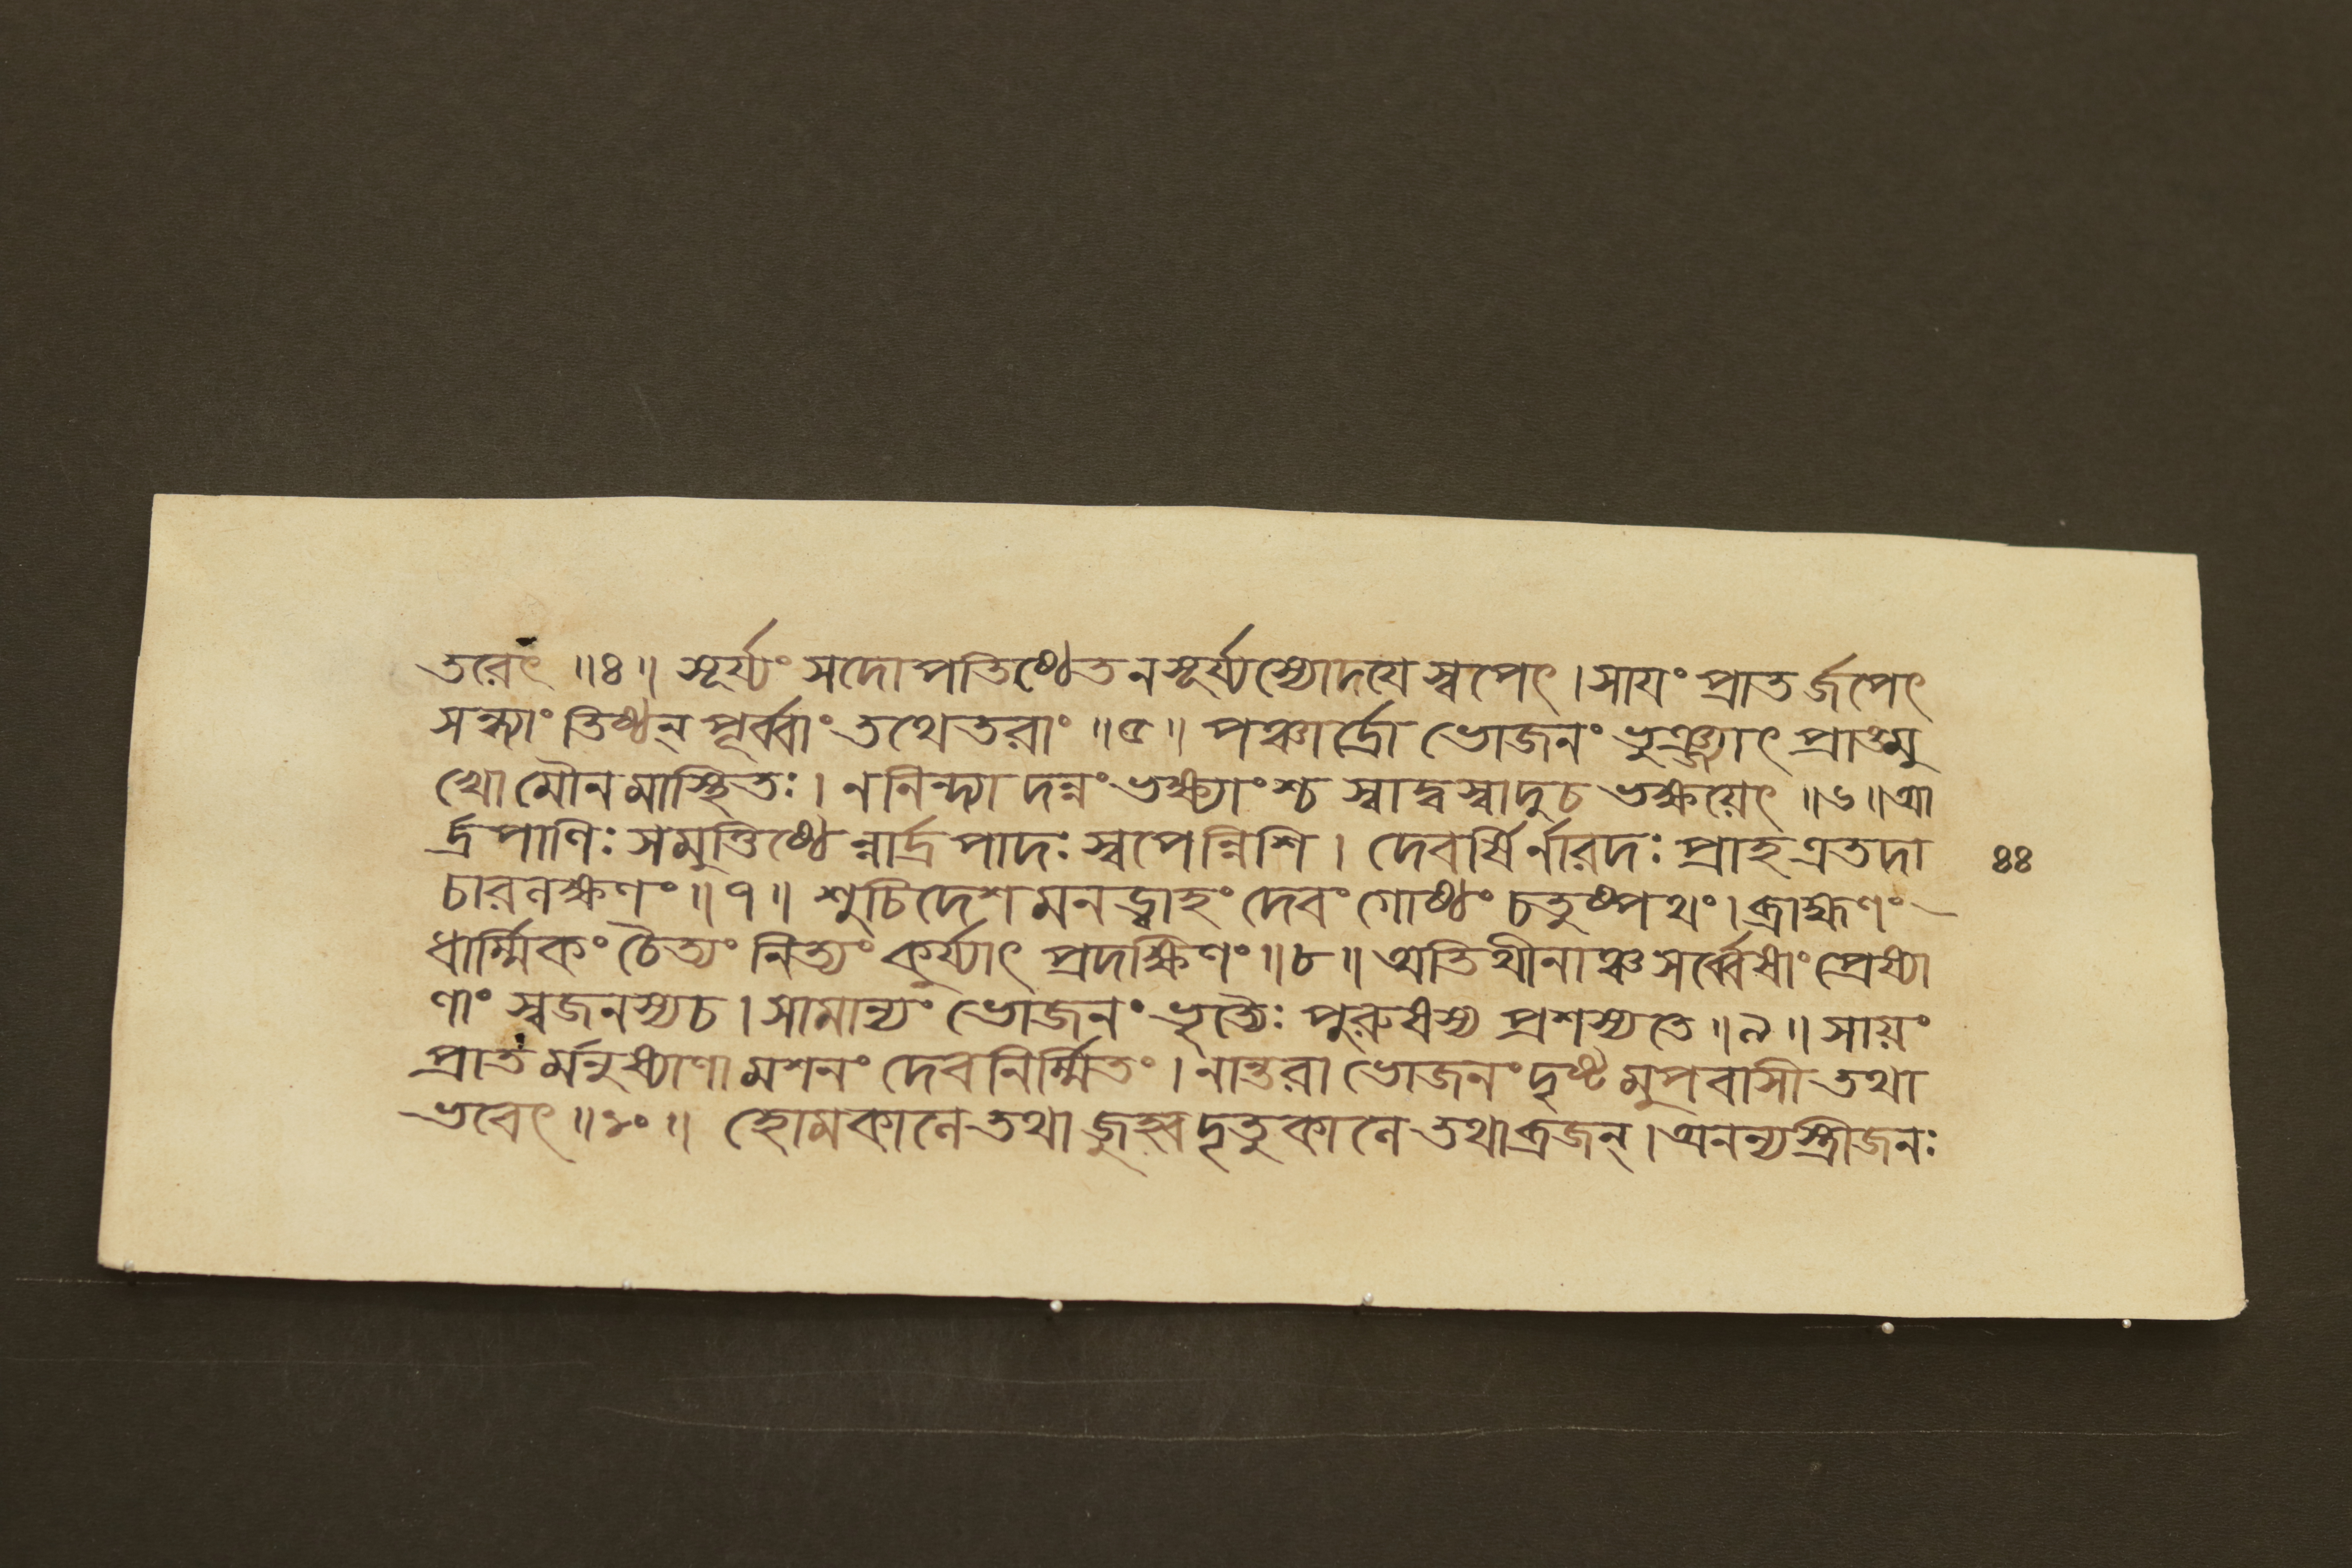 তরেৎ ॥৪॥ সূর্য্যং সদোপতিষ্ঠেত ন সূর্য্যস্যোদয়ে স্বপেৎ । সাযং প্রাতর্জপেৎ
সন্ধ্যাং তিষ্ঠন্ পূর্ব্বাং তথেতরাং ॥৫॥ পঞ্চার্দ্রো ভোজনং ভুঞ্জ্যাৎ প্রাঙ্মু
খো মৌনমাস্থিতঃ । ন নিন্দ্যাদন্নং ভক্ষ্যাংশ্চ স্বাদ্বস্বাদু চ ভক্ষয়েৎ ॥৬॥ আ
র্দ্রপাণিঃ সমুত্তিষ্ঠেন্নার্দ্রপাদঃ স্বপেন্নিশি । দেবর্ষির্নারদঃ প্রাহ এতদা
৪৪
চারলক্ষণং ॥৭॥ শুচিদেশমনড্বাহং দেবং গোষ্ঠং চতুষ্পথং । ব্রাহ্মণং
ধার্ম্মিকং চৈত্যং নিত্যং কুর্য্যাৎ প্রদক্ষিণং ॥৮॥ অতিথীনাঞ্চ সর্ব্বেষাং প্রেষ্যা
ণাং স্বজনস্য চ । সামান্যং ভোজনং ভৃত্যৈঃ পুরুষস্য প্রশস্যতে ॥৯॥ সায়ং
প্রাতর্মনুষ্যাণামশনং দেবনির্ম্মিতং । নান্তরা ভোজনং দৃষ্টমুপবাসী তথা
ভবেৎ ॥১০॥ হোমকালে তথা জুহ্বদৃতুকালে তথা ব্রজন্ । অনন্যস্ত্রীজনঃ